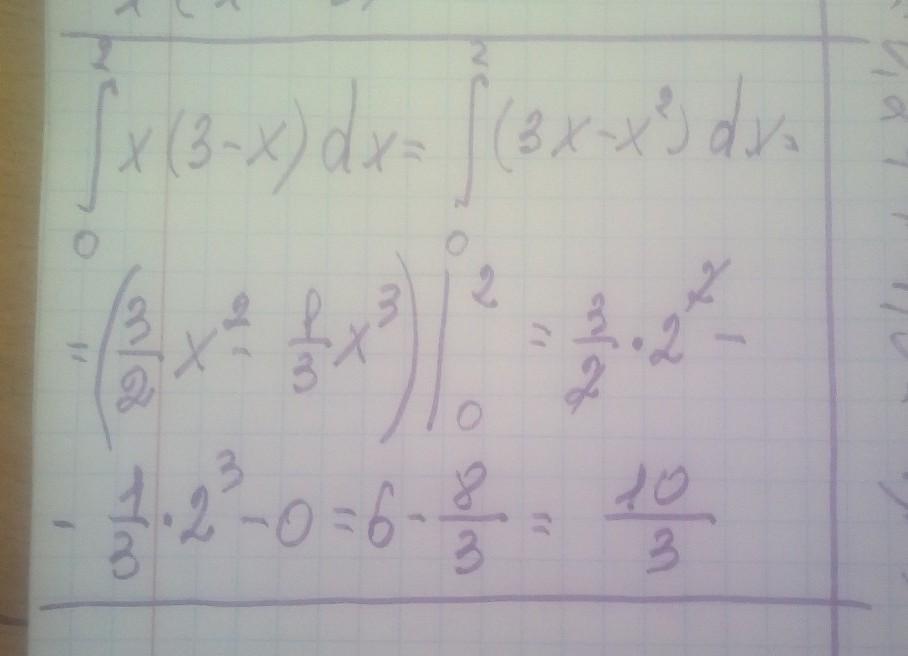 ∫₀² x(3-x)dx = ∫₀² (3x-x²)dx =
= (3/2 x² - 1/3 x³) |₀² = 3/2 · 2² -
- 1/3 · 2³ - 0 = 6 - 8/3 = 10/3